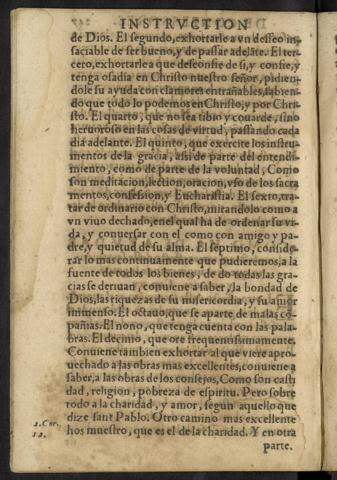 INSTRVCTION
de Dios. El segundo, exhortarle a vn desseo in-
saciable de ser bueno, y de passar adelãte. El ter-
cero, exhortarle a que desconfie de si, y confie, y
tenga osadia en Christo nuestro señor, pidien-
dole su ayuda con clamores entrañables, sabien-
do que todo lo podemos en Christo, y por Chri-
sto. El quarto, que no sea tibio y couarde, sino
heruoroso en las cosas de virtud, passando cada
dia adelante. El quinto, que exercite los instru-
mentos de la gracia, assi de parte del entendi-
miento, como de parte de la voluntad, Como
son meditacion, lection, oracion, vso de los sacra
mentos, confession, y Eucharistia. El sexto, tra-
tar de ordinario con Christo, mirandolo como a
vn viuo dechado, en el qual há de ordenar su vi-
da, y conuersar con el como con amigo y pa-
dre, y quietud de su alma. El septimo, conside-
rar lo mas continuamente que pudieremos, a la
fuente de todos los bienes, de do todas las gra-
cias se deriuan, conuiene a saber, la bondad de
Dios, las riquezas de su misericordia, y su amor
immenso. El octauo, que se aparte de malas cõ-
pañias. El nono, que tenga cuenta con las pala-
bras. El decimo, que ore frequentissimamente.
Conuiene tambien exhortar al que viere apro-
uechado a las obras mas excellentes, conuiene a
saber, a las obras de los consejos, Como son casti
dad, religion, pobreza de espiritu. Pero sobre
todo a la charidad, y amor, segun aquello que
dize sant Pablo. Otro camino mas excellente
1. Cor.
12.
hos muestro, que es el de la charidad. Y en otra
parte.